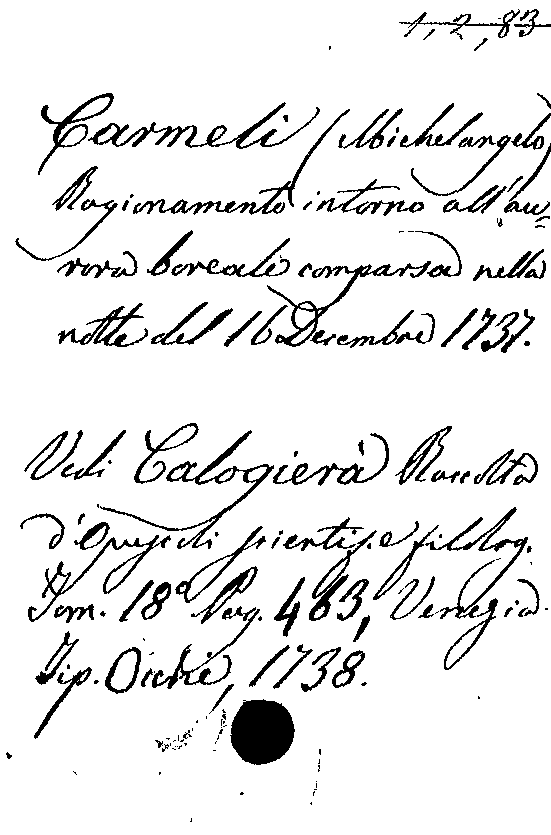 1, 2, 83
Carmeli (Michelangelo)
Ragionamento intorno all'au=
rora boreale comparsa nella
notte del 16 Decembre 1737.
Vedi Calogierà Raccolta
d'Opuscoli scientif. e filolog.
Tom. 18° Pag. 463, Venezia.
Tip. Occhi, 1738.